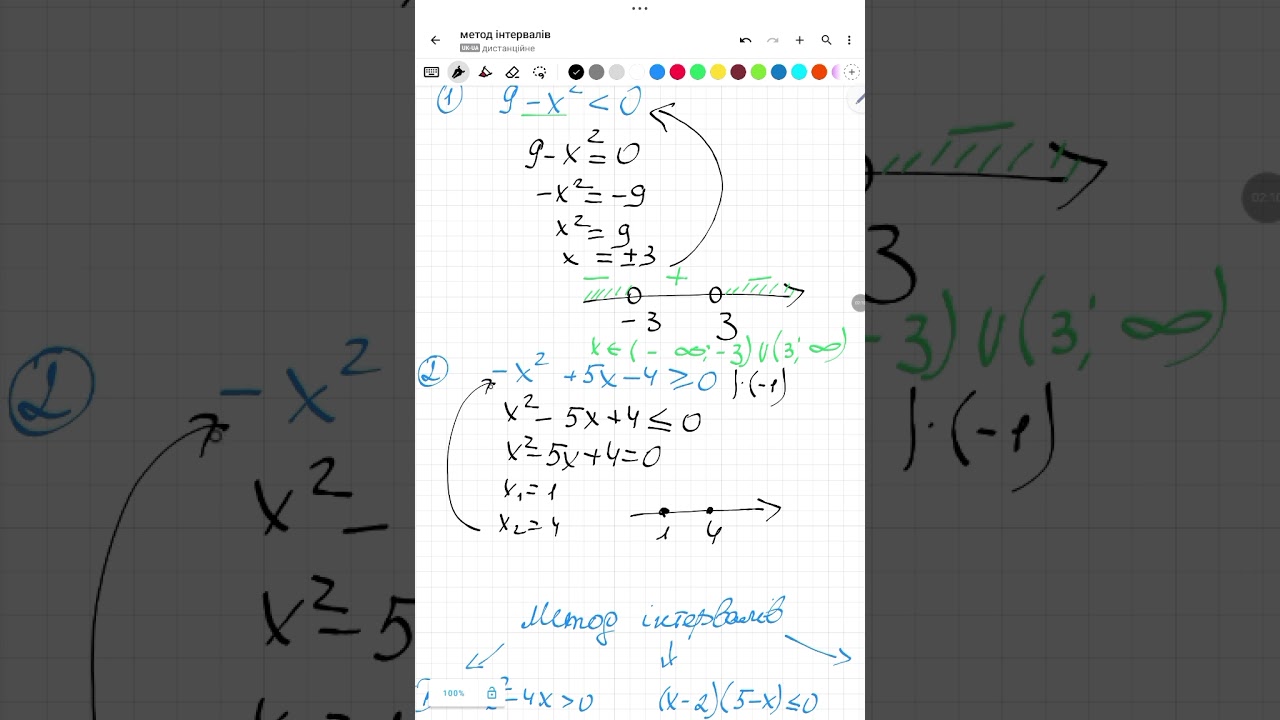 метод інтервалів
UK-UA дистанційне
① 9 - x² < 0
9 - x² = 0
-x² = -9
x² = 9
x = ±3
− + −
-3 3
x ∈ (-∞; -3) ∪ (3; ∞)
② -x² + 5x - 4 ≥ 0 |·(-1)
x² - 5x + 4 ≤ 0
x² - 5x + 4 = 0
x₁ = 1
x₂ = 4
1 4
Метод інтервалів
² - 4x > 0 (x-2)(5-x) ≤ 0
100%